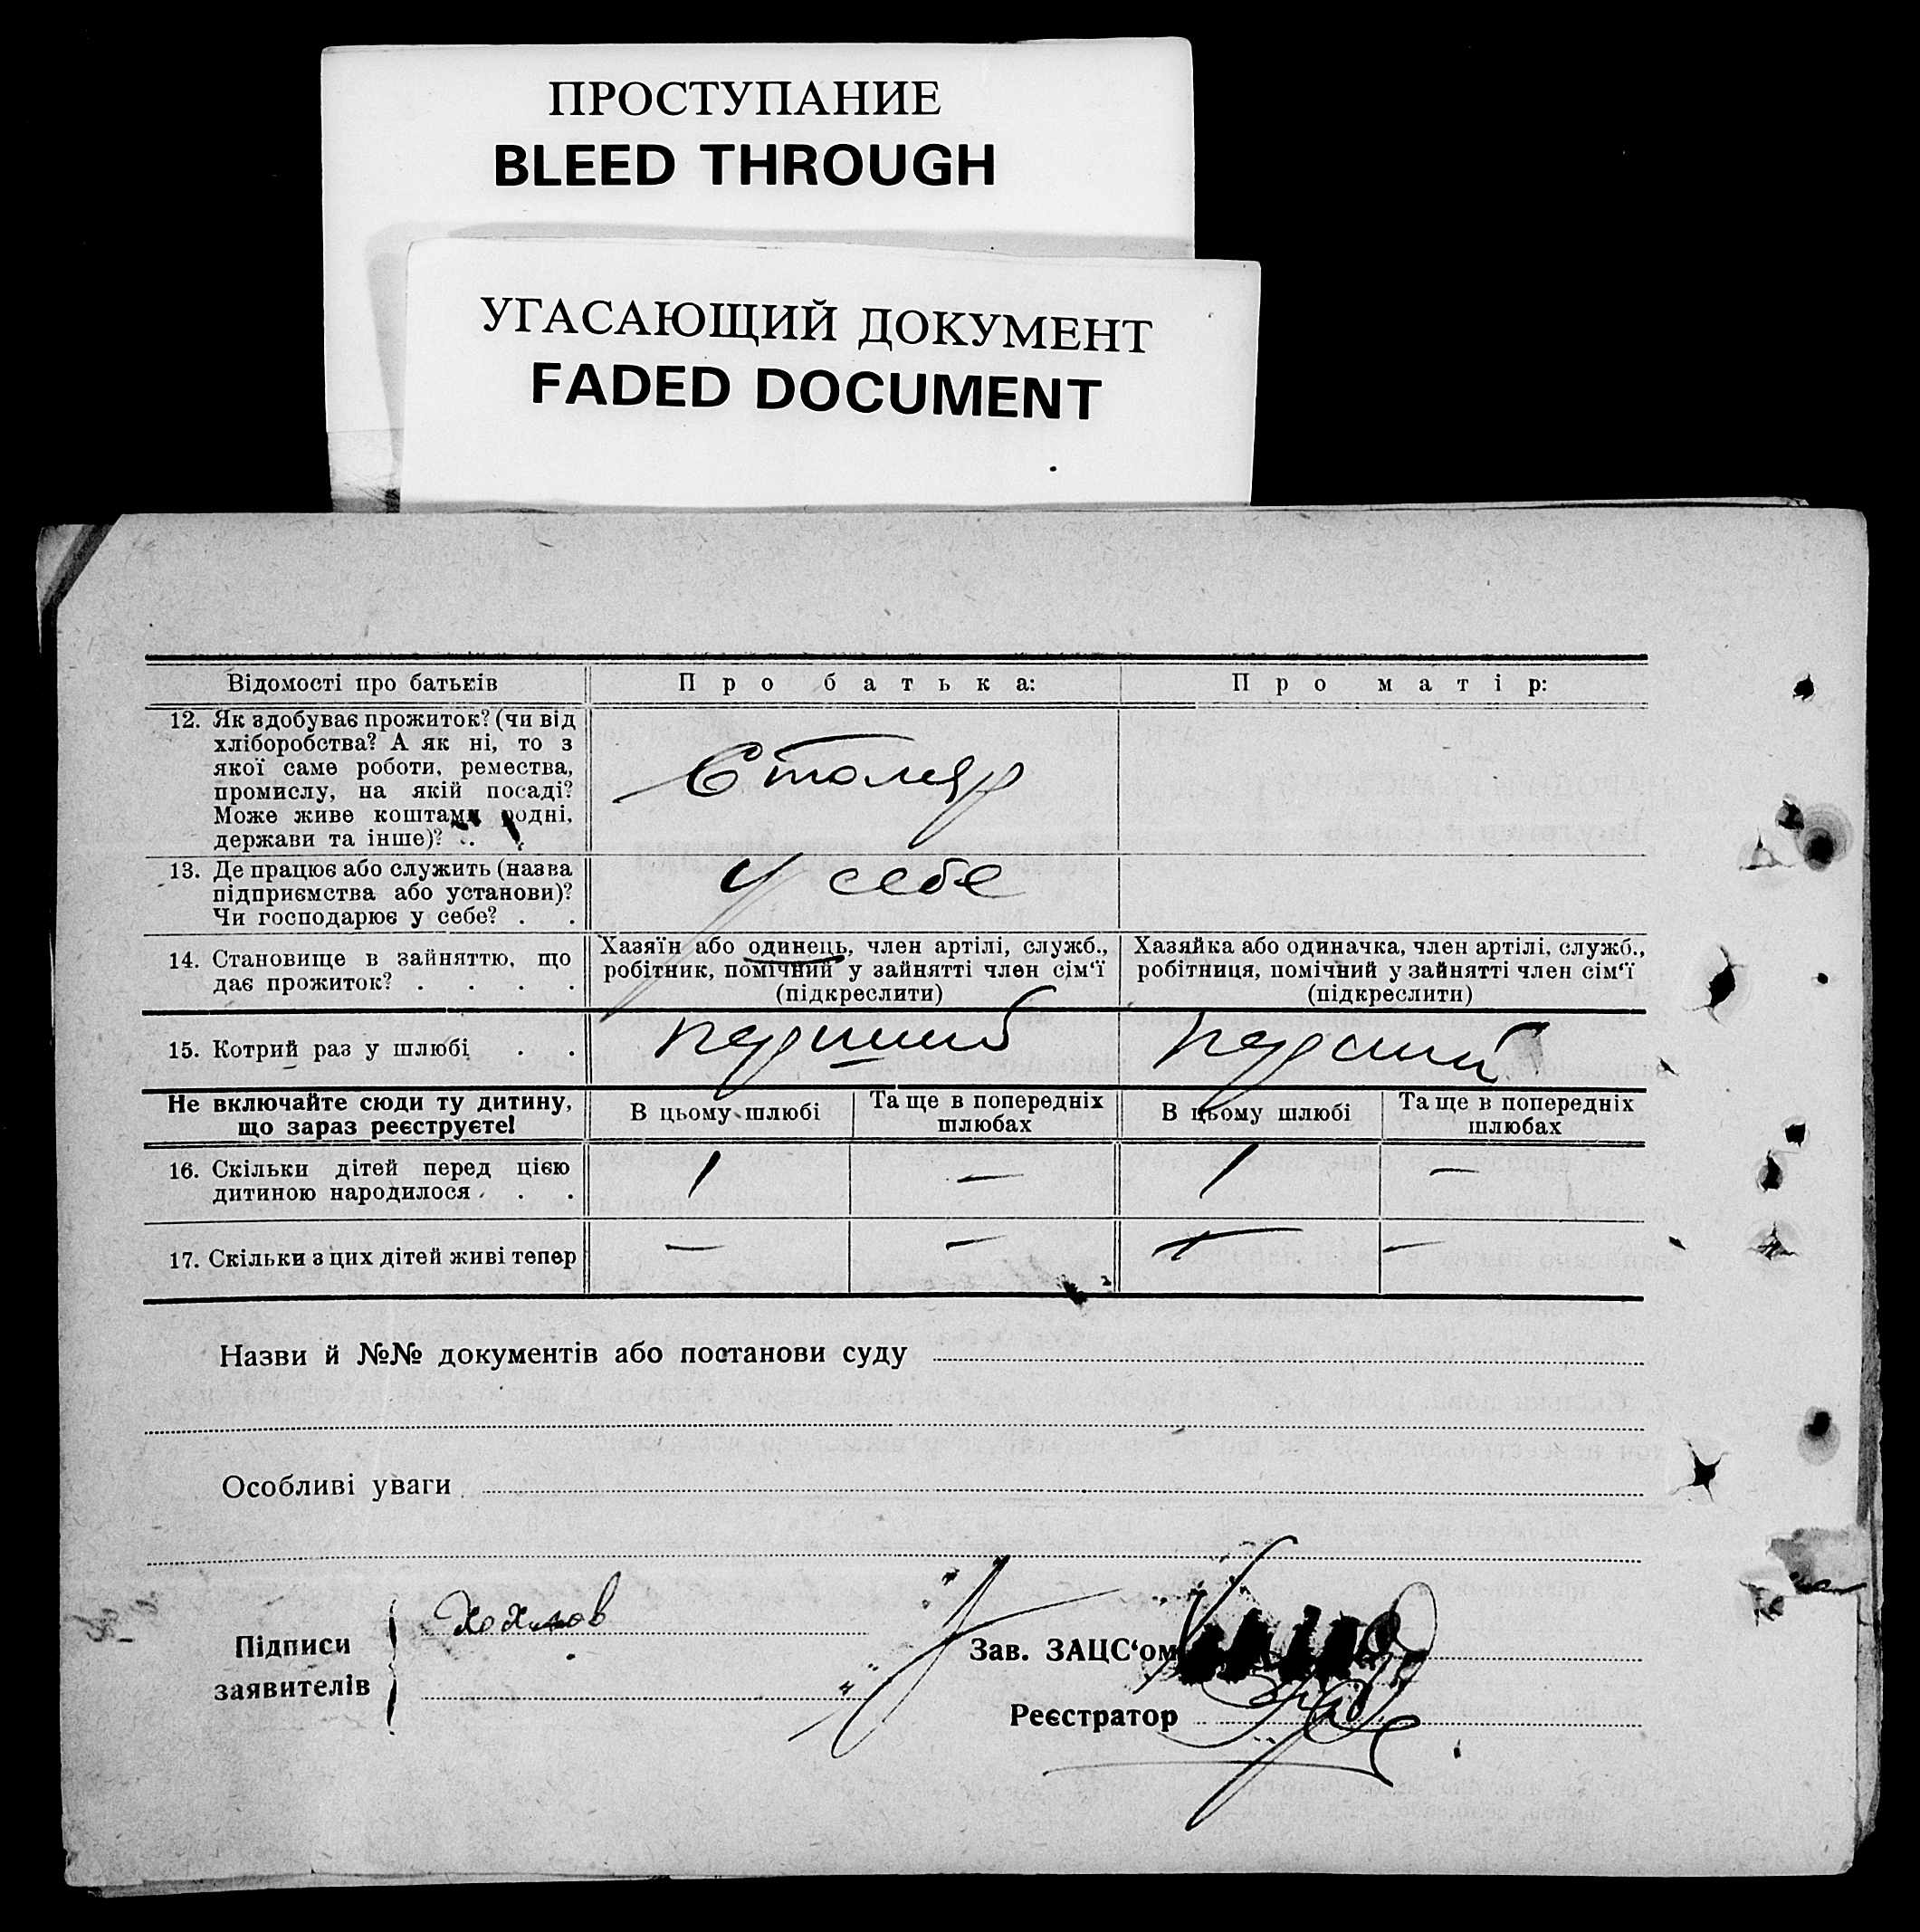 ПРОСТУПАНИЕ
BLEED THROUGH
УГАСАЮЩИЙ ДОКУМЕНТ
FADED DOCUMENT
Відомості про батьків Про батька: Про матір:
12. Як здобуває прожиток? (чи від
хліборобства? А як ні, то з
якої саме роботи, ремества,
промислу, на якій посаді?
Може живе коштами родні,
держави та інше)? ..
Столяр
13. Де працює або служить (назва
підприємства або установи)?
Чи господарює у себе? . .
У себе
14. Становище в зайняттю, що
дає прожиток? . . . .
Хазяїн або одинець, член артілі, служб.,
робітник, помічний у зайнятті член сім'ї
(підкреслити)
Хазяйка або одиначка, член артілі, служб.,
робітниця, помічний у зайнятті член сім'ї
(підкреслити)
15. Котрий раз у шлюбі . . перший перший
Не включайте сюди ту дитину,
що зараз реєструєте!
В цьому шлюбі
Та ще в попередніх
шлюбах
В цьому шлюбі
Та ще в попередніх
шлюбах
16. Скільки дітей перед цією
дитиною народилося . . .
1 — 1 —
17. Скільки з цих дітей живі тепер — — —
Назви й №№ документів або постанови суду
Особливі уваги
Підписи
заявителів
Зав. ЗАЦС'ом
Реєстратор